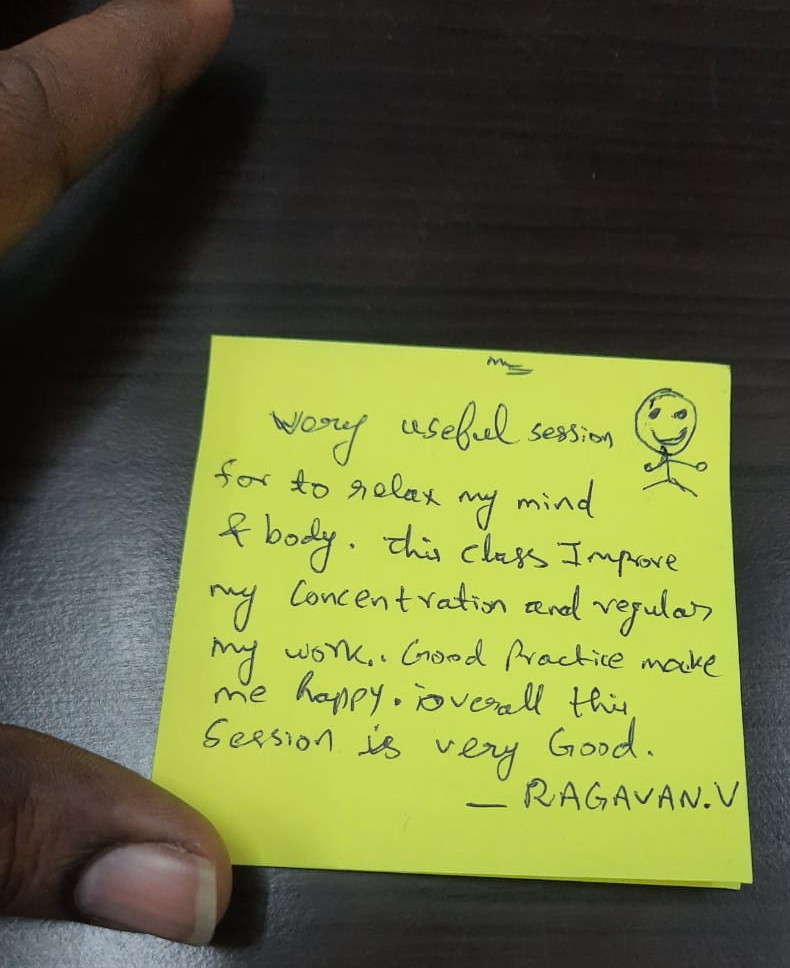 Very useful session
for to relax my mind
& body. this class Improve
my Concentration and regular
my work.. Good Practice make
me happy. overall this
Session is very Good.
— RAGAVAN.V